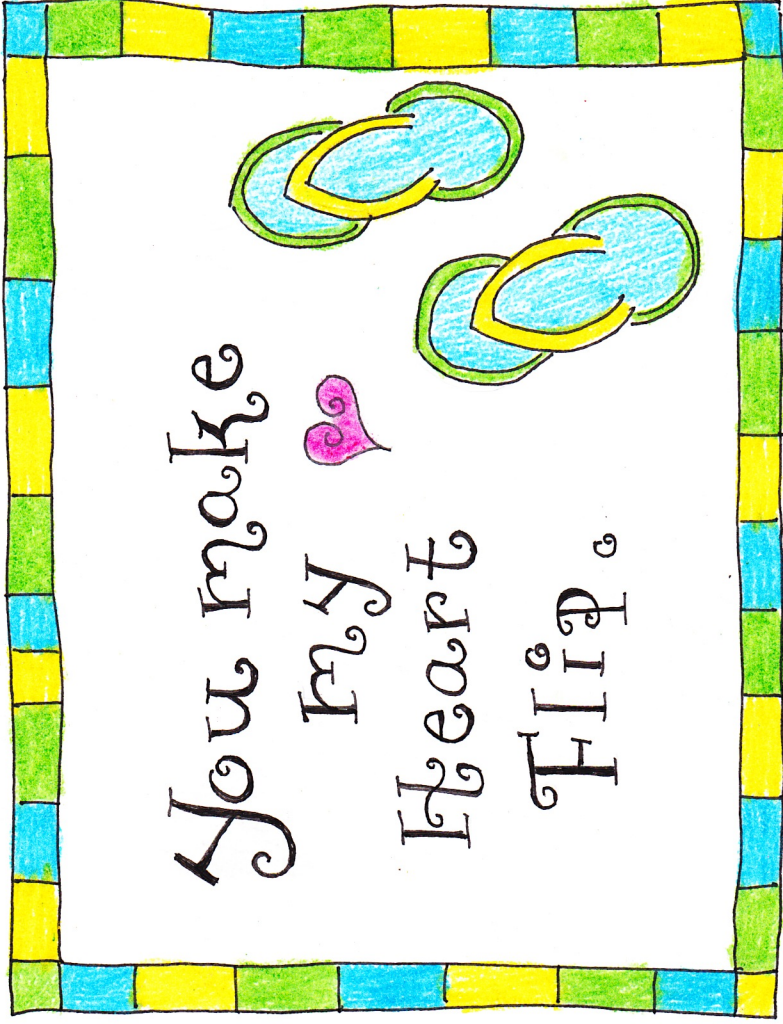 You make
my
Heart
Flip.